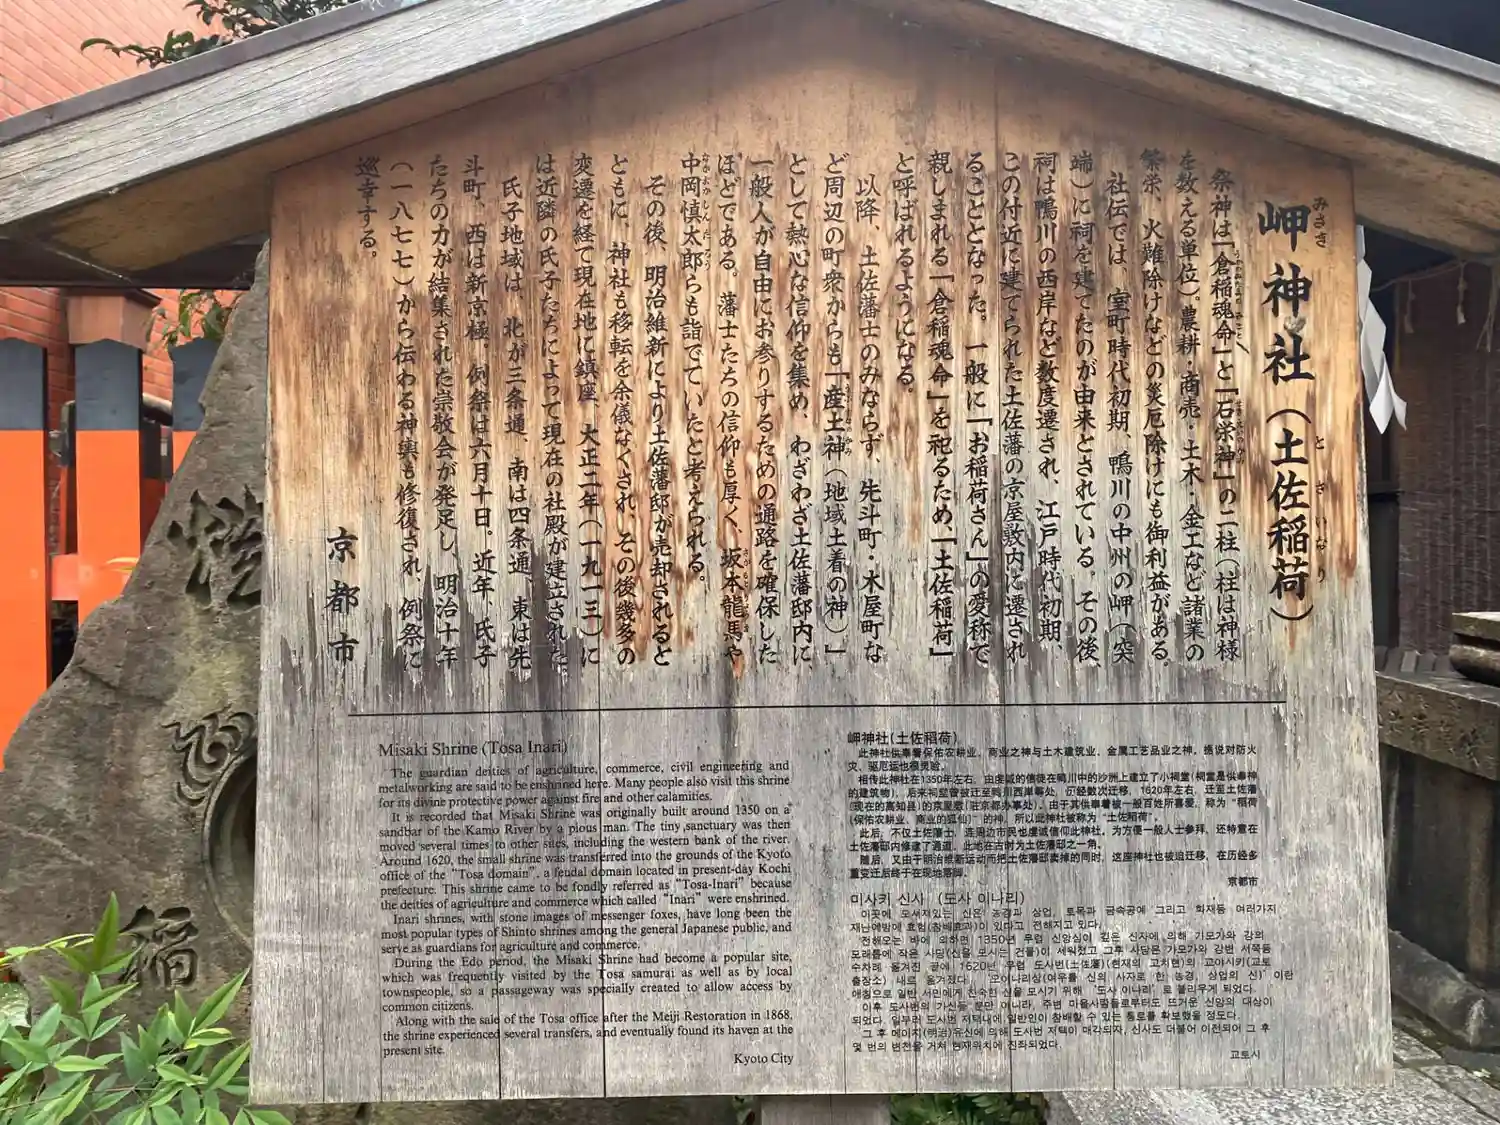 岬神社（土佐稲荷）
祭神は「倉稲魂命」と「石栄神」の二柱（柱は神様
を数える単位）。農耕・商売・土木・金工など諸業の
繁栄、火難除けなどの災厄除けにも御利益がある。
社伝では、室町時代初期、鴨川の中州の岬（突
端）に祠を建てたのが由来とされている。その後、
祠は鴨川の西岸など数度遷され、江戸時代初期、
この付近に建てられた土佐藩の京屋敷内に遷され
ることとなった。一般に「お稲荷さん」の愛称で
親しまれる「倉稲魂命」を祀るため、「土佐稲荷」
と呼ばれるようになる。
以降、土佐藩士のみならず、先斗町・木屋町な
ど周辺の町衆からも「産土神（地域土着の神）」
として熱心な信仰を集め、わざわざ土佐藩邸内に、
一般人が自由にお参りするための通路を確保した
ほどである。藩士たちの信仰も厚く、坂本龍馬や
中岡慎太郎らも詣でていたと考えられる。
その後、明治維新により土佐藩邸が売却されると
ともに、神社も移転を余儀なくされ、その後幾多の
変遷を経て現在地に鎮座、大正二年（一九一三）に
は近隣の氏子たちによって現在の社殿が建立された。
氏子地域は、北が三条通、南は四条通、東は先
斗町、西は新京極。例祭は六月十日。近年、氏子
たちの力が結集された崇敬会が発足し、明治十年
（一八七七）から伝わる神輿も修復され、例祭に
巡幸する。
京都市
Misaki Shrine (Tosa Inari)
The guardian deities of agriculture, commerce, civil engineering and
metalworking are said to be enshrined here. Many people also visit this shrine
for its divine protective power against fire and other calamities.
It is recorded that Misaki Shrine was originally built around 1350 on a
sandbar of the Kamo River by a pious man. The tiny sanctuary was then
moved several times to other sites, including the western bank of the river.
Around 1620, the small shrine was transferred into the grounds of the Kyoto
office of the "Tosa domain", a feudal domain located in present-day Kochi
prefecture. This shrine came to be fondly referred as "Tosa-Inari" because
the deities of agriculture and commerce which called "Inari" were enshrined.
Inari shrines, with stone images of messenger foxes, have long been the
most popular types of Shinto shrines among the general Japanese public, and
serve as guardians for agriculture and commerce.
During the Edo period, the Misaki Shrine had become a popular site,
which was frequently visited by the Tosa samurai as well as by local
townspeople, so a passageway was specially created to allow access by
common citizens.
Along with the sale of the Tosa office after the Meiji Restoration in 1868,
the shrine experienced several transfers, and eventually found its haven at the
present site.
Kyoto City
岬神社(土佐稻荷)
此神社供奉着保佑农耕业、商业之神与土木建筑业、金属工艺品业之神。据说对防火
灾、驱厄运也很灵验。
相传此神社在1350年左右，由虔诚的信徒在鸭川中的沙洲上建立了小祠堂(祠堂是供奉神
的建筑物)，后来祠堂曾被迁至鸭川西岸等处，历经数次迁移，1620年左右，迁至土佐藩
(现在的高知县)的京屋敷(驻京都办事处)。由于其供奉着被一般百姓所喜爱，称为"稻荷
(保佑农耕业、商业的狐仙)"的神，所以此神社被称为"土佐稻荷"。
此后，不仅土佐藩士，连周边市民也虔诚信仰此神社。为方便一般人士参拜，还特意在
土佐藩邸内修建了通道。此地在古时为土佐藩邸之一角。
随后，又由于明治维新运动而把土佐藩邸卖掉的同时，这座神社也被迫迁移，在历经多
重变迁后终于在现地落脚。
京都市
미사키 신사 (도사 이나리)
이곳에 모셔져있는 신은 농경과 상업, 토목과 금속공예 그리고 화재등 여러가지
재난예방에 효험(참배효과)이 있다고 전해지고 있다.
전해오는 바에 의하면 1350년 무렵 신앙심이 깊은 신자에 의해 가모가와 강의
모래톱에 작은 사당(신을 모시는 건물)이 세워졌고 그후 사당은 가모가와 강변 서쪽등
수차례 옮겨진 끝에 1620년 무렵 도사번(土佐藩)(현재의 고치현)의 교야시키(교토
출장소) 내로 옮겨졌다. '오이나리상(여우를 신의 사자로 한 농경, 상업의 신)'이란
애칭으로 일반 서민에게 친숙한 신을 모시기 위해 '도사 이나리'로 불리우게 되었다.
이후 도사번의 가신들 뿐만 아니라, 주변 마을사람들로부터도 뜨거운 신앙의 대상이
되었다. 일부러 도사번 저택내에 일반인이 참배할 수 있는 통로를 확보했을 정도다.
그 후 메이지(明治)유신에 의해 도사번 저택이 매각되자, 신사도 더불어 이전되어 그 후
몇 번의 변천을 거쳐 현재위치에 진좌되었다.
교토시